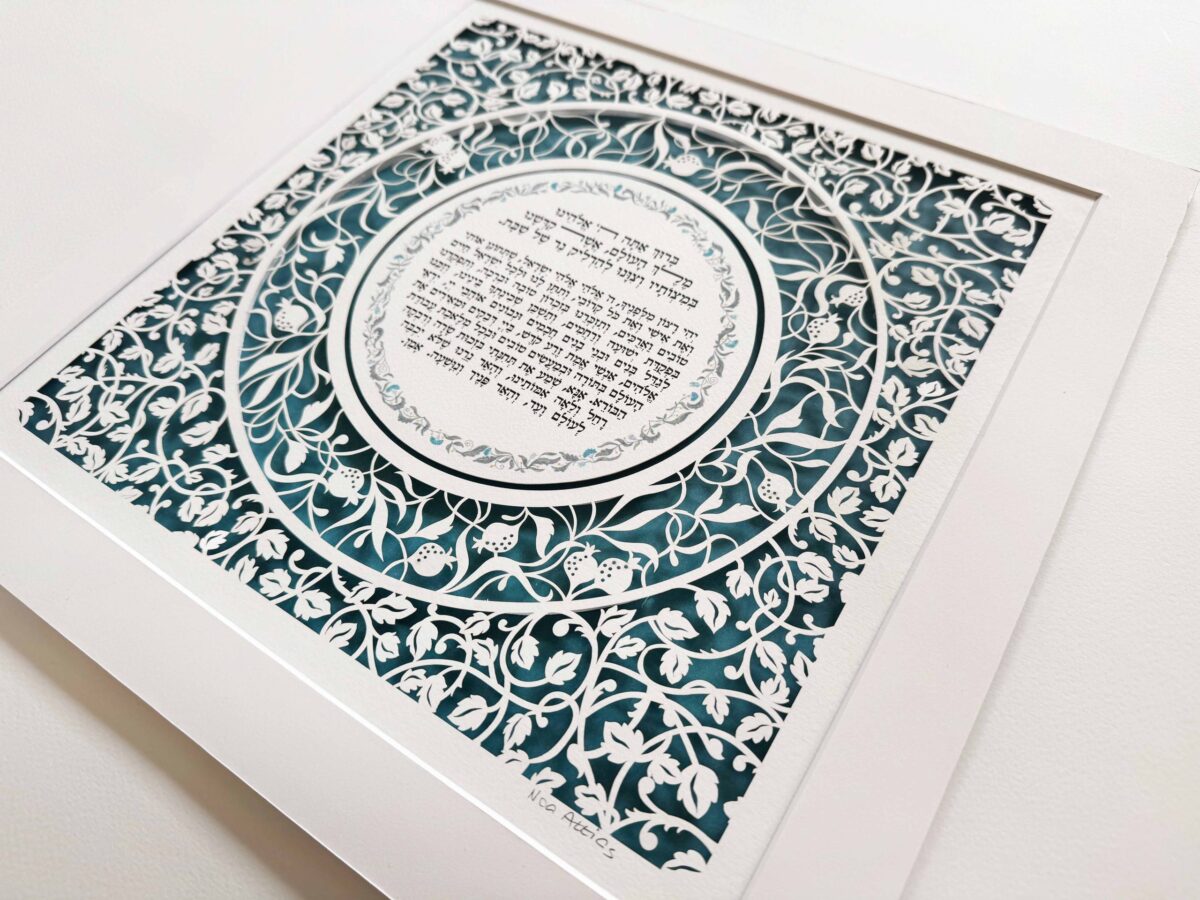 בָּרוּךְ אַתָּה יְ'י אֱלֹהֵינוּ
מֶלֶךְ הָעוֹלָם, אֲשֶׁר קִדְּשָׁנוּ
בְּמִצְוֹתָיו וְצִוָּנוּ לְהַדְלִיק נֵר שֶׁל שַׁבָּת.
יְהִי רָצוֹן מִלְּפָנֶיךָ, ה' אֱלֹהֵי יִשְׂרָאֵל, שֶׁתְּחוֹנֵן אוֹתִי
וְאֶת אִישִׁי וְאֶת כָּל קְרוֹבַי, וְתִתֵּן לָנוּ וּלְכָל יִשְׂרָאֵל חַיִּים
טוֹבִים וַאֲרֻכִּים, וְתִזְכְּרֵנוּ בְּזִכְרוֹן טוֹבָה וּבְרָכָה, וְתִפְקְדֵנוּ
בִּפְקֻדַּת יְשׁוּעָה וְרַחֲמִים, וְתַשְׁכֵּן שְׁכִינָתְךָ בֵּינֵינוּ, וְזַכֵּנוּ
לְגַדֵּל בָּנִים וּבְנֵי בָנִים חֲכָמִים וּנְבוֹנִים אוֹהֲבֵי יְיָ, יִרְאֵי
אֱלֹהִים, אַנְשֵׁי אֱמֶת זֶרַע קֹדֶשׁ, בַּיְיָ דְּבֵקִים וּמְאִירִים אֶת
הָעוֹלָם בַּתּוֹרָה וּבְמַעֲשִׂים טוֹבִים וּבְכָל מְלֶאכֶת עֲבוֹדַת
הַבּוֹרֵא. אָנָּא, שְׁמַע אֶת תְּחִנָּתִי בִּזְכוּת שָׂרָה, וְרִבְקָה
רָחֵל וְלֵאָה אִמּוֹתֵינוּ, וְהָאֵר נֵרֵנוּ שֶׁלֹּא יִכְבֶּה
לְעוֹלָם וָעֶד, וְהָאֵר פָּנֶיךָ וְנִוָּשֵׁעָה. אָמֵן.
Noa Attias